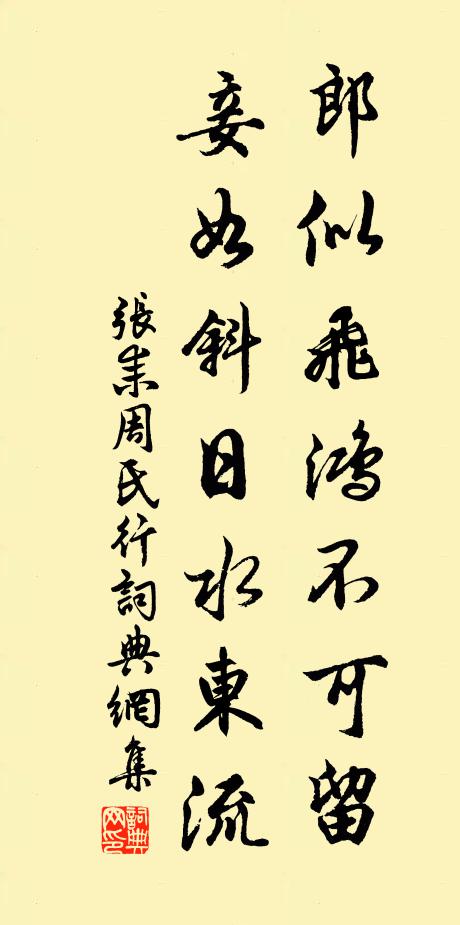 郎似飛鴻不可留
妾如斜日水東流
張耒周氏行詞典網集
詞典網印